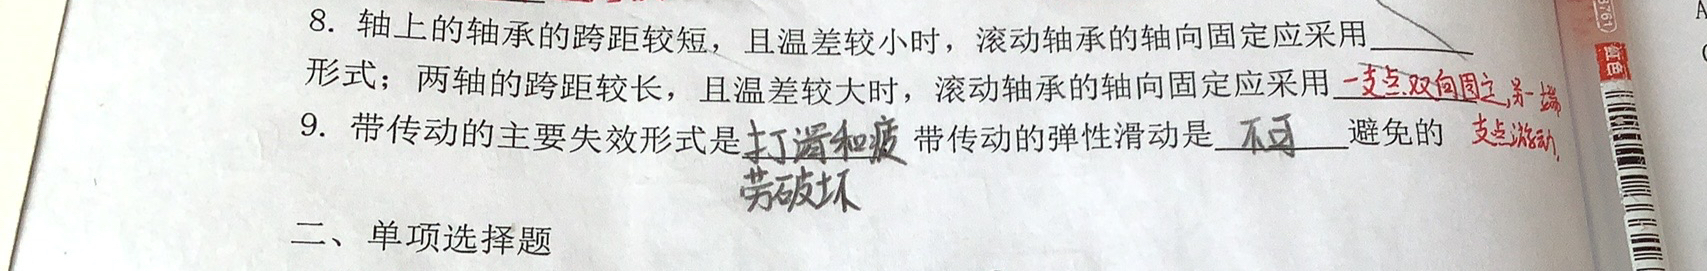 8. 轴上的轴承的跨距较短，且温差较小时，滚动轴承的轴向固定应采用______
形式；两轴的跨距较长，且温差较大时，滚动轴承的轴向固定应采用 一支点双向固定,另一端
支点游动.
9. 带传动的主要失效形式是打滑和疲 带传动的弹性滑动是 不可 避免的
劳破坏
二、单项选择题